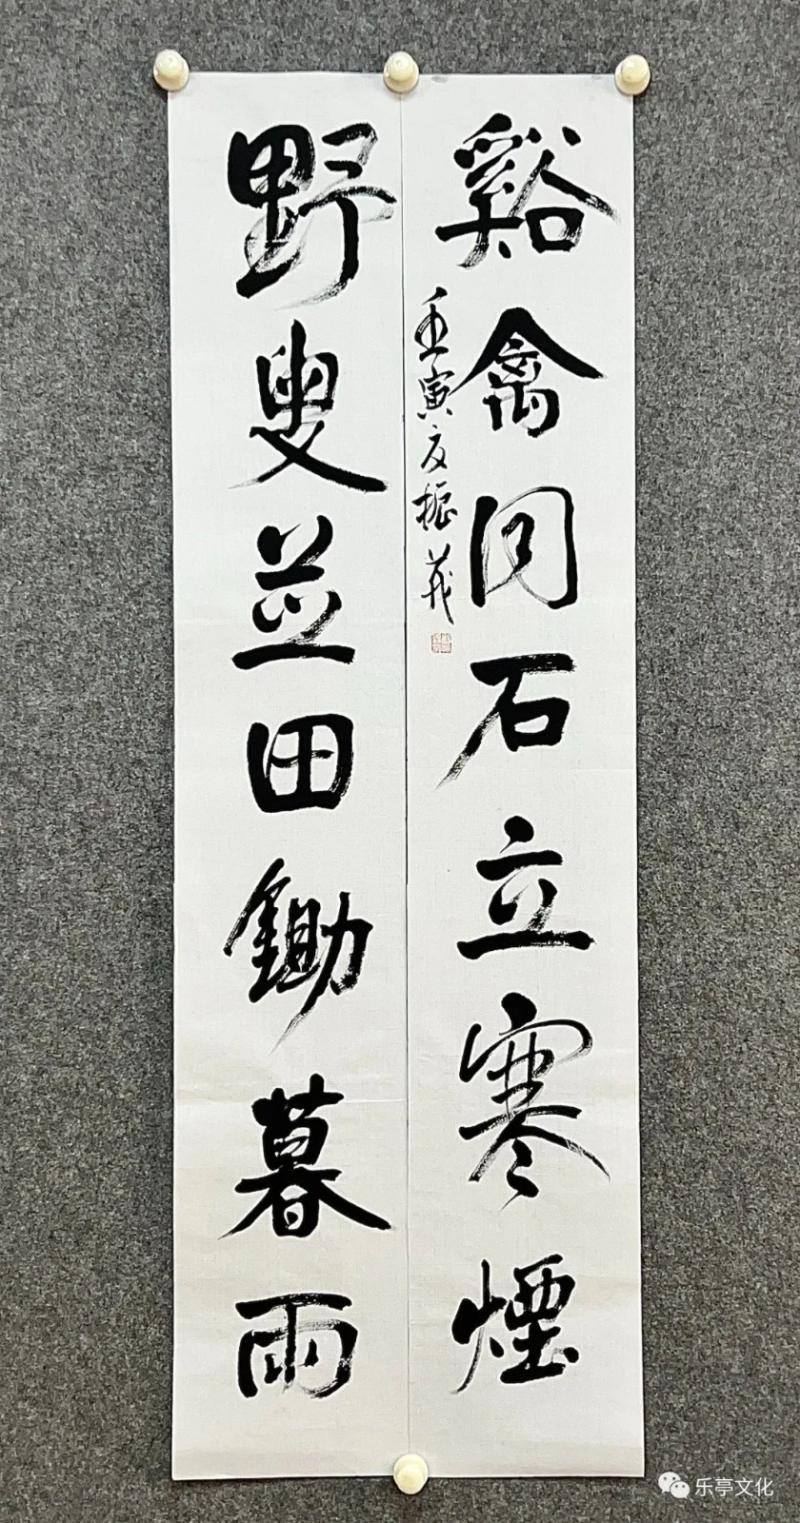 谿禽同石立寒煙
壬寅夏振羛
野叟並田鋤暮雨
乐亭文化